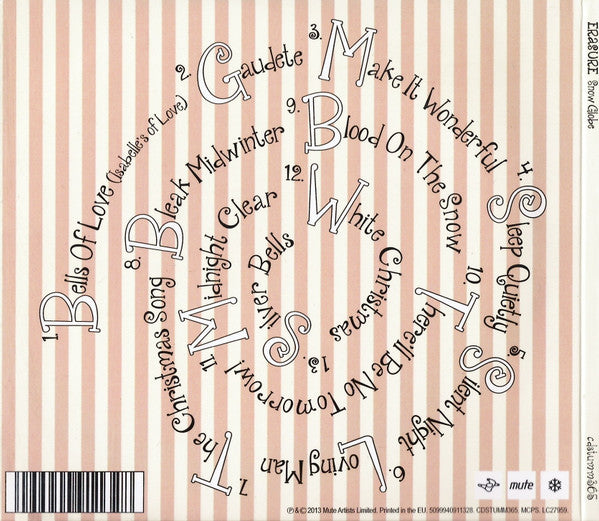 1. Bells Of Love (Isabelle's of Love)
2. Gaudete
3. Make It Wonderful
4. Sleep Quietly
5. Silent Night
6. Loving Man
7. The Christmas Song
8. Bleak Midwinter
9. Blood On The Snow
10. There'll Be No Tomorrow!
11. Midnight Clear
12. White Christmas
13. Silver Bells
mute
℗ & © 2013 Mute Artists Limited. Printed in the EU. 5099940911328. CDSTUMM365. MCPS. LC27959.
ERASURE Snow Globe
cdstumm365